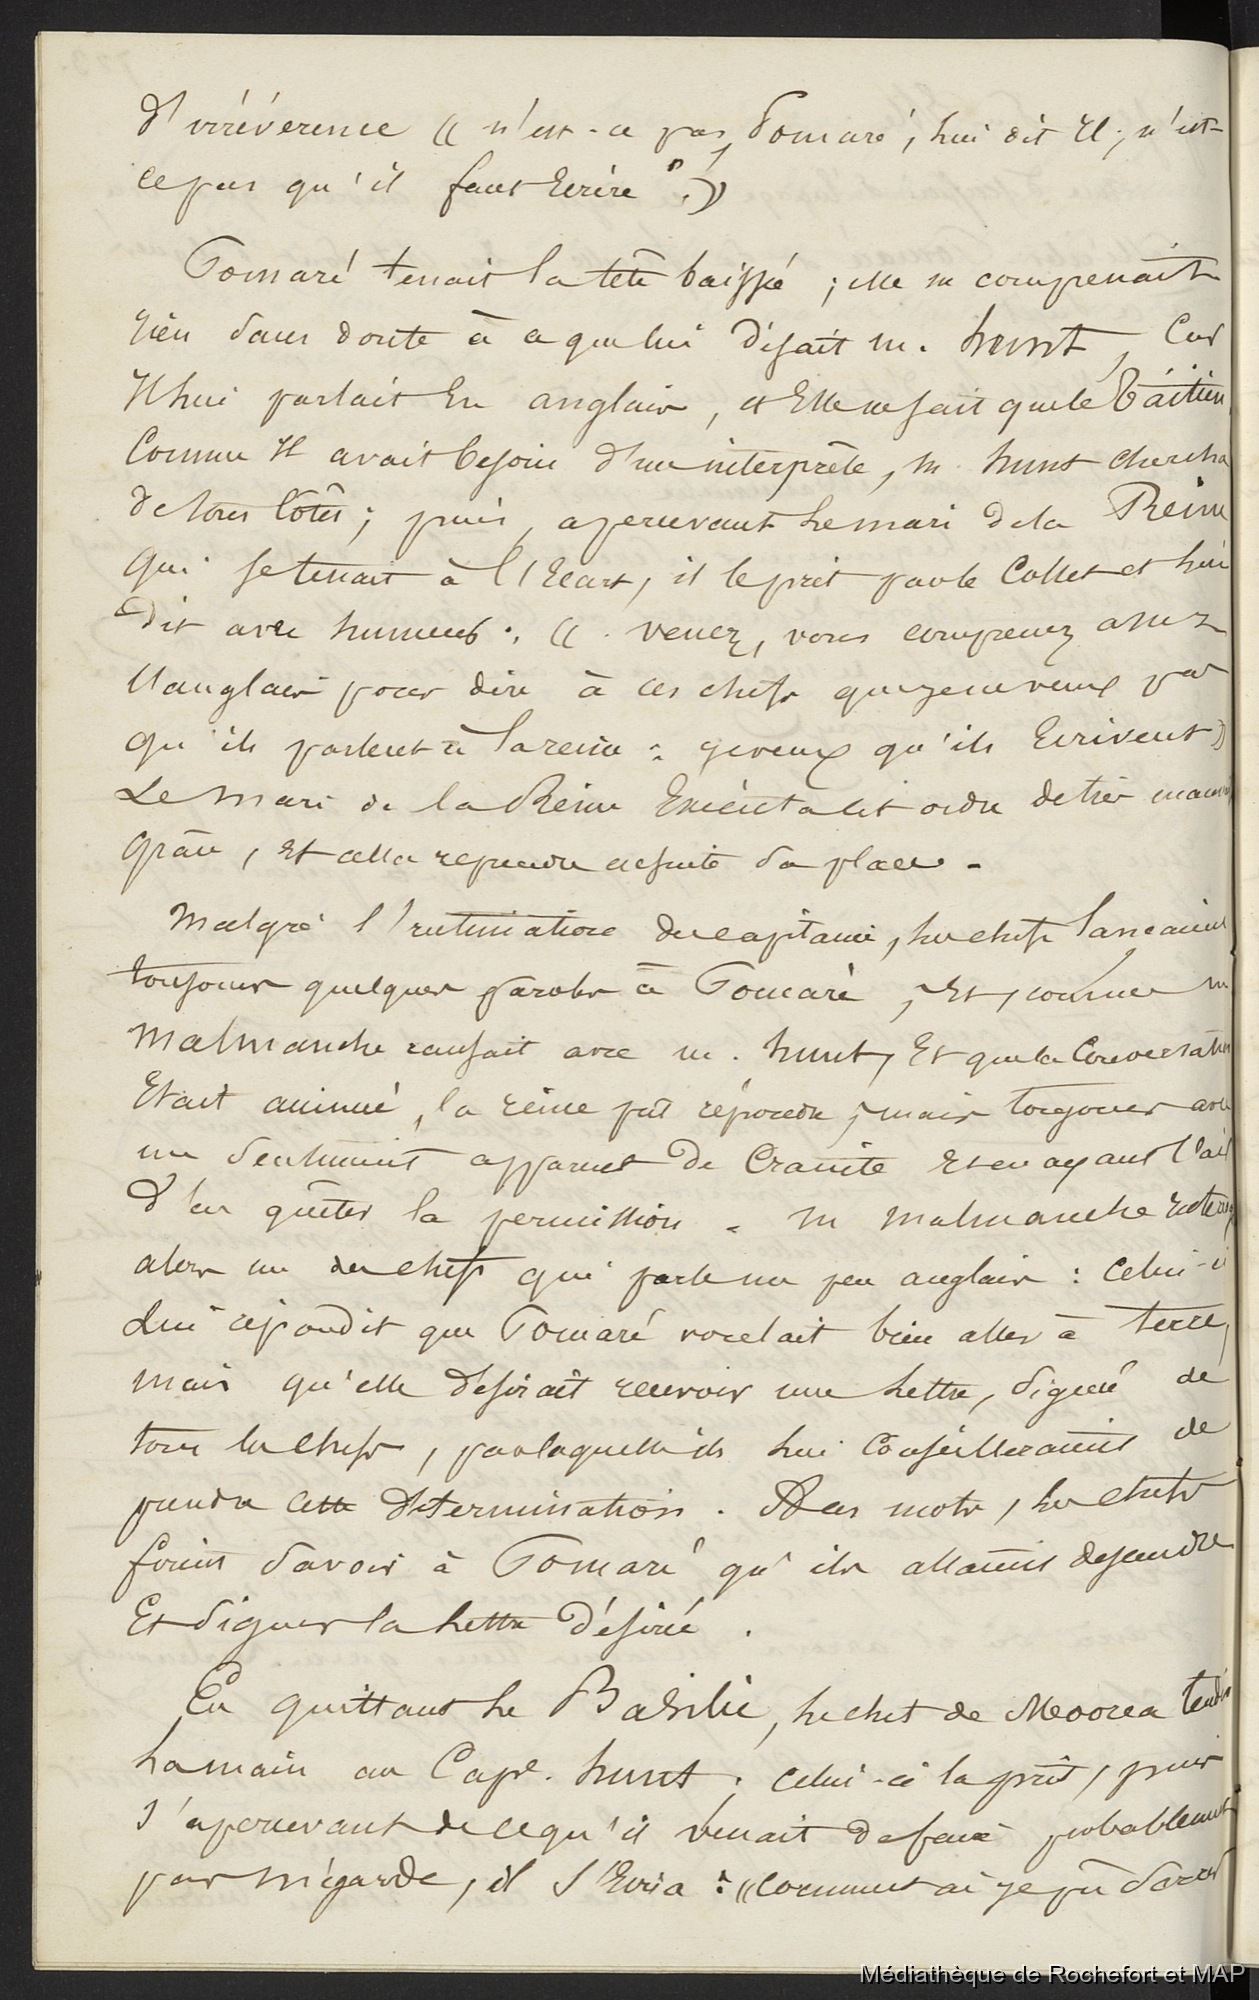 d'irrévérence (( n'est-ce pas, Pomaré, lui dit il, n'est-
ce pas qu'il faut Ecrire ? ))
Pomaré tenait la tête baissée ; elle ne comprenait
rien sans doute à ce que lui disait m. hunt, Car
Il lui parlait En anglais, et Elle ne sait que le Taïtien
Comme Il avait besoin d'un interprète, m. hunt chercha
de tous Côtés ; puis, apercevant le mari de la Reine
qui se tenait à l'Ecart, il le prit par le Collet et lui
dit avec humeur : (( venez, vous comprenez assez
l'anglais pour dire à ces chefs que je ne veux pas
qu'ils parlent à la reine : je veux qu'ils Ecrivent ))
Le mari de la Reine Exécuta cet ordre de très mauvaise
grâce, et alla reprendre ensuite sa place -
Malgré l'intimation du capitaine, les chefs lançaient
toujours quelques paroles à Pomaré ; Et, comme m
Malmanche causait avec m. hunt, Et que la Conversation
Etait animée, la reine put répondre ; mais toujours avec
un sentiment apparent de Crainte Et en ayant l'air
d'en quêter la permission - m Malmanche
alors un des chefs qui parle un peu anglais : Celui-ci
lui répondit que Pomaré voulait bien aller à terre,
mais qu'elle désirait recevoir une lettre, signée de
tous les chefs, par laquelle ils lui Conseilleraient de
prendre cette détermination. A ces mots, les chefs
firent savoir à Pomaré qu'ils allaient descendre
Et signer la lettre désirée .
En quittant le Basilic, le chef de Moorea tendit
la main au Cape. hunt ; Celui-ci la prit, puis
s'apercevant de ce qu'il venait de faire probablement
par mégarde, il s'Ecria : (( Comment ai je pu
Médiathèque de Rochefort et MAP